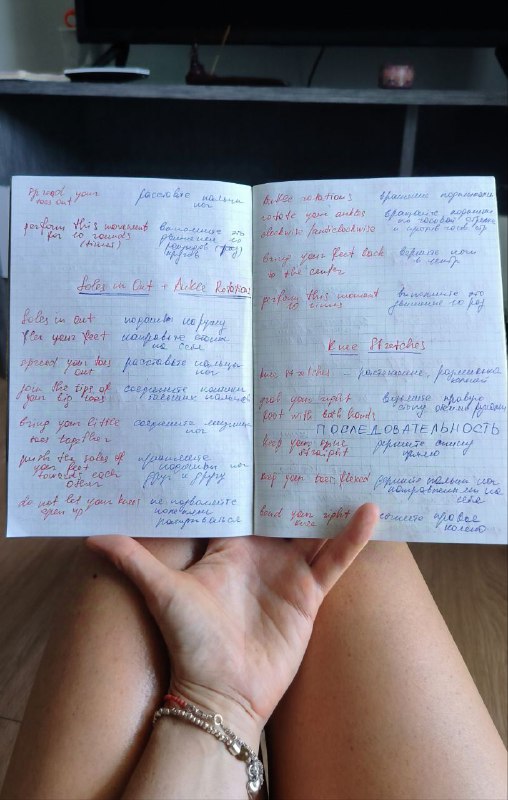 spread your расставьте пальцы
toes out ног
perform this movement выполните это
for 10 rounds движение 10
(times) (раз)
кругов
Soles in Out + Ankle Rotations
Soles in Out подошвы наружу
flex your feet направьте стопы
на себя
spread your toes расставьте пальцы
out ног
join the tips of соедините кончики
your big toes больших пальцев
bring your little соедините мизинцы
toes together ног
push the soles of прижмите
your feet подошвы ног
towards each друг к другу
other
do not let your knees не позволяйте
open up коленям
раскрываться
Ankle rotations вращение
rotate your ankles вращайте
clockwise/anticlockwise по часовой стрелке
и против час стр
bring your feet back верните ноги
to the center в центр
perform this moment выполните это
10 times движение 10 раз
Knee Stretches
knee stretches - растяжение,
коленей
grab your right возьмите правую
foot with both hands стопу двумя руками
ПОСЛЕДОВАТЕЛЬНОСТЬ
keep your spine держите спину
straight прямо
keep your toes flexed держите пальцы ног
на
себя
bend your right согните правое
knee колено